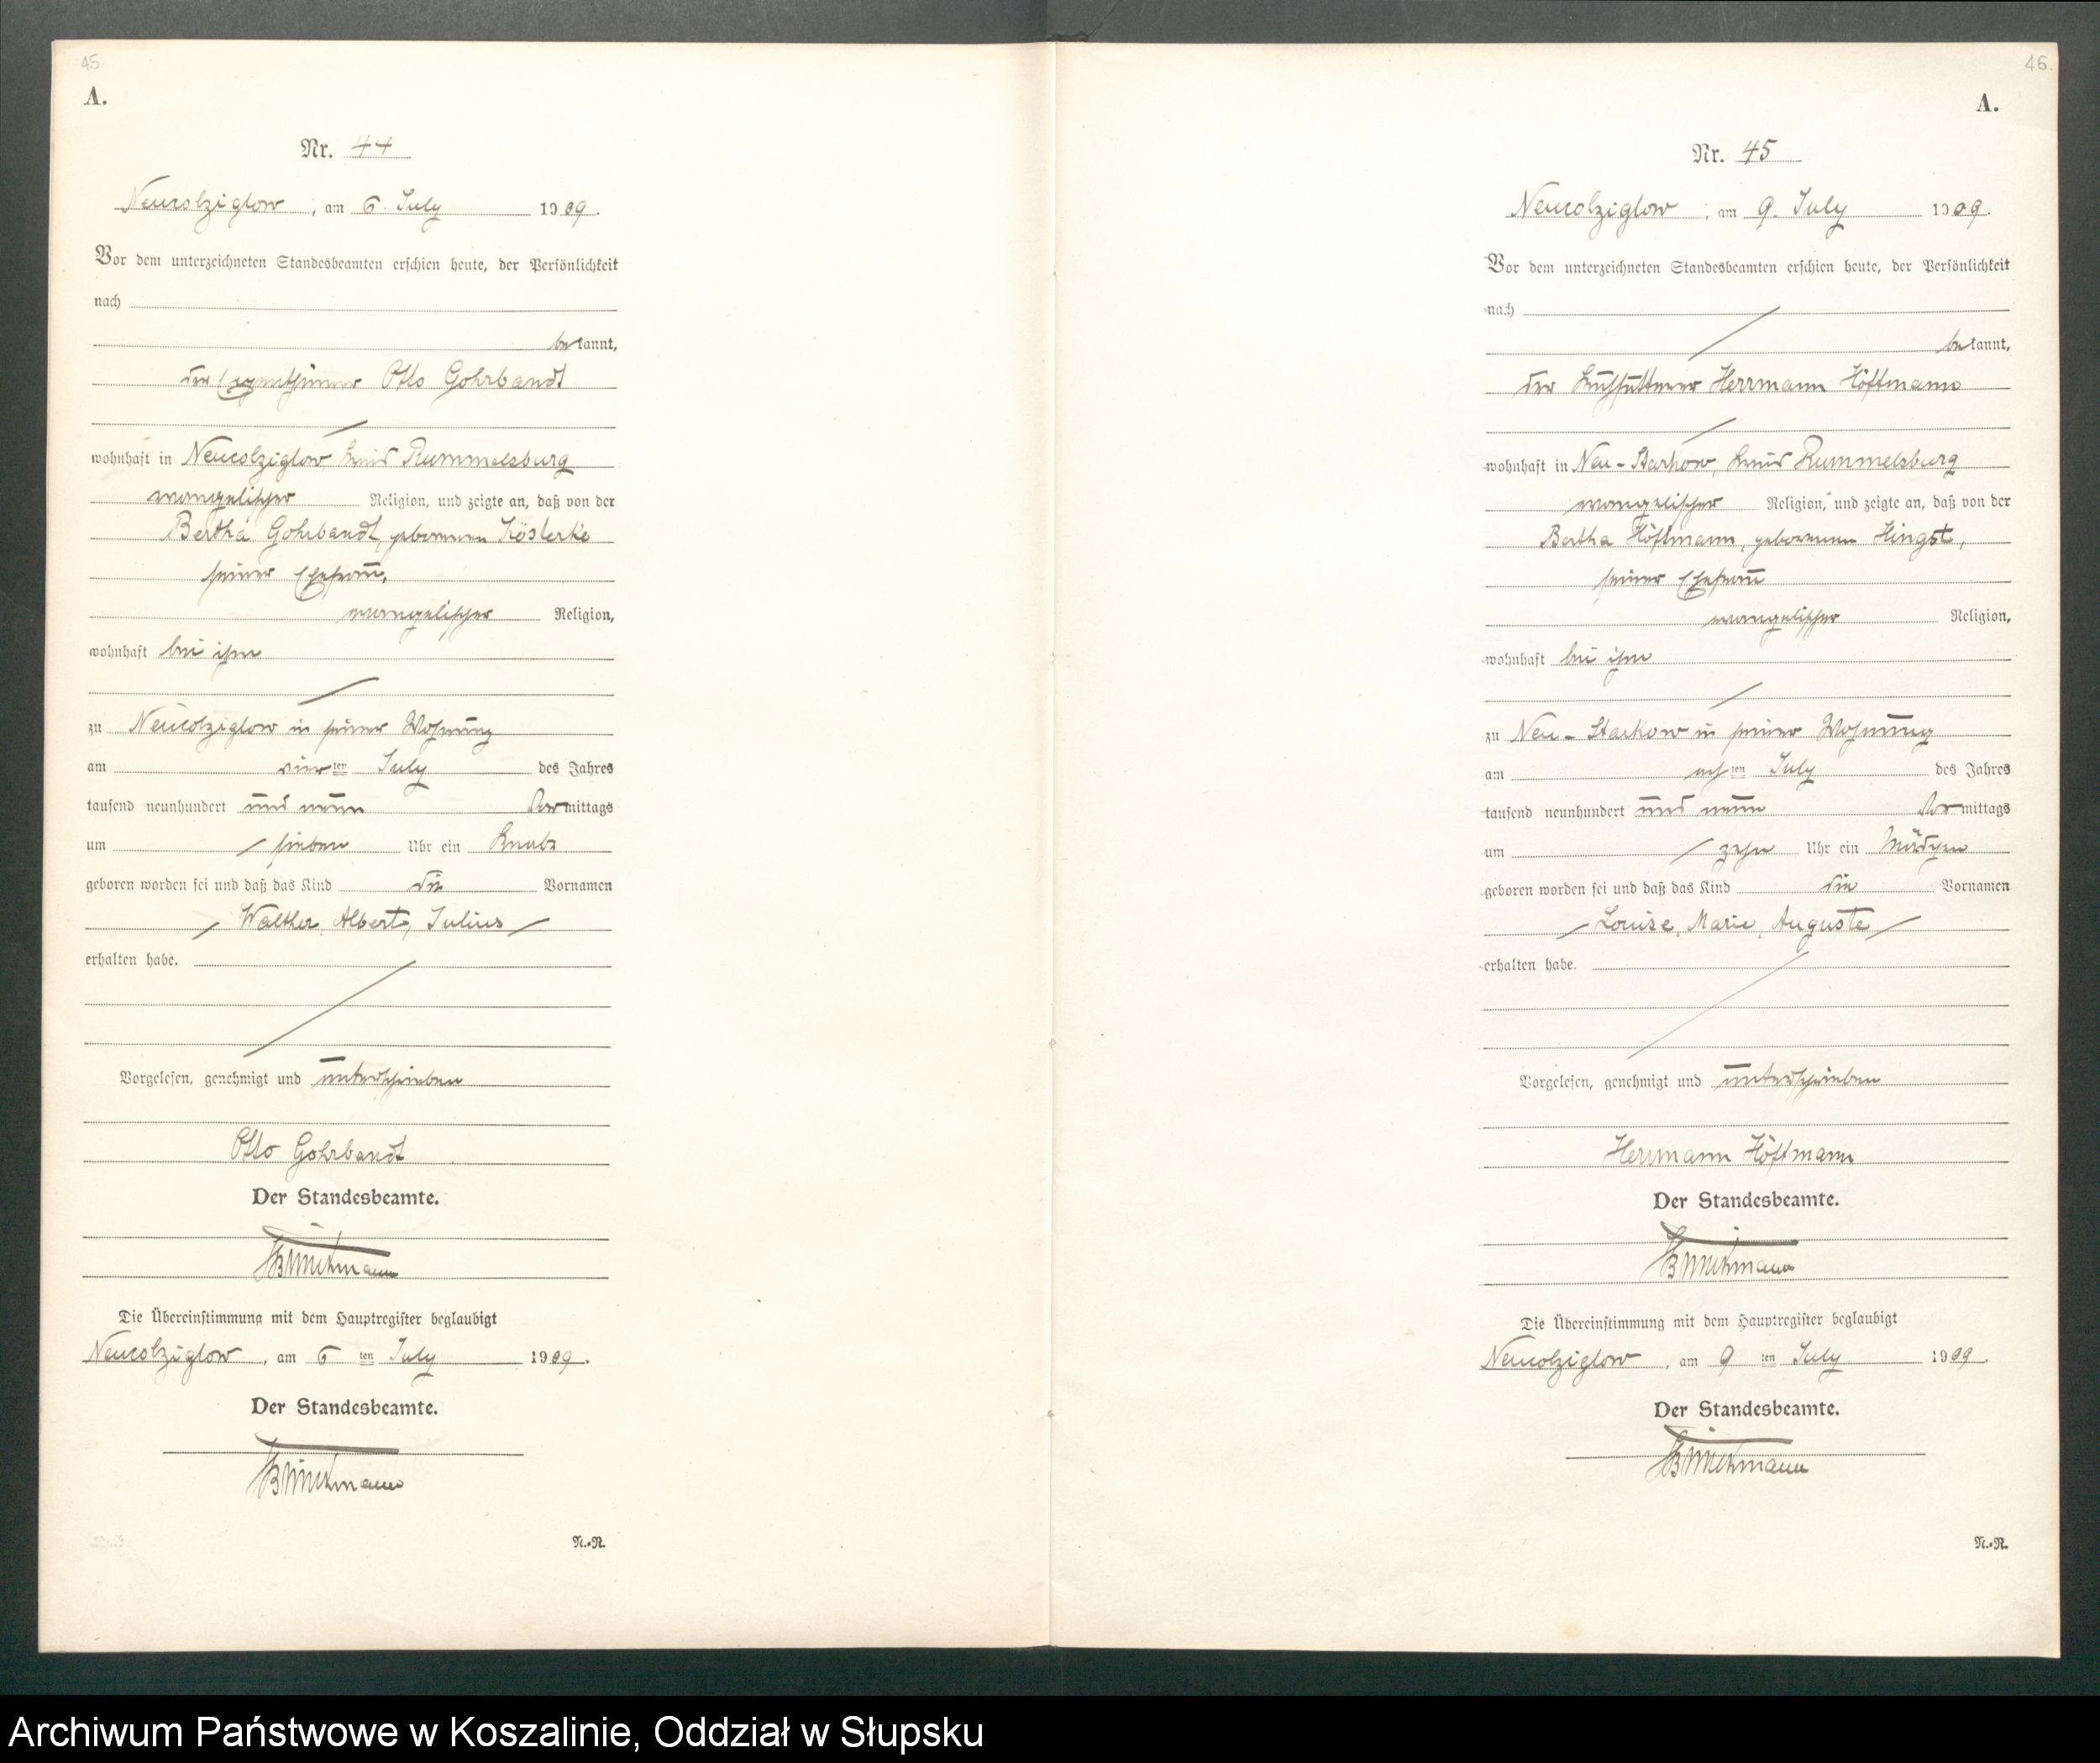 45.
A.
Nr. 44
Neucolziglow, am 6. July 1909.
Vor dem unterzeichneten Standesbeamten erschien heute, der Persönlichkeit
nach
bekannt,
der Eigenthümer Otto Gohrbandt
wohnhaft in Neucolziglow, Kreis Rummelsburg
evangelischer Religion, und zeigte an, daß von der
Bertha Gohrbandt, geborenen Kösterke
seiner Ehefrau,
evangelischer Religion,
wohnhaft bei ihm
zu Neucolziglow in seiner Wohnung
am vierten July des Jahres
tausend neunhundert und neun Vormittags
um sieben Uhr ein Knabe
geboren worden sei und daß das Kind die Vornamen
Walther, Albert, Julius
erhalten habe.
Vorgelesen, genehmigt und unterschrieben
Otto Gohrbandt
Der Standesbeamte.
Die Übereinstimmung mit dem Hauptregister beglaubigt
Neucolziglow, am 6ten July 1909.
Der Standesbeamte.
N.-R.
46.
A.
Nr. 45
Neucolziglow, am 9. July 1909.
Vor dem unterzeichneten Standesbeamten erschien heute, der Persönlichkeit
nach
bekannt,
der Kuhfütterer Herrmann Höftmann
wohnhaft in Neu-Starkow, Kreis Rummelsburg
evangelischer Religion, und zeigte an, daß von der
Bertha Höftmann, geborenen Hingst,
seiner Ehefrau
evangelischer Religion,
wohnhaft bei ihm
zu Neu-Starkow in seiner Wohnung
am achten July des Jahres
tausend neunhundert und neun Vormittags
um zehn Uhr ein Mädchen
geboren worden sei und daß das Kind die Vornamen
Louise, Marie, Auguste
erhalten habe.
Vorgelesen, genehmigt und unterschrieben
Herrmann Höftmann
Der Standesbeamte.
Die Übereinstimmung mit dem Hauptregister beglaubigt
Neucolziglow, am 9ten July 1909.
Der Standesbeamte.
N.-R.
Archiwum Państwowe w Koszalinie, Oddział w Słupsku